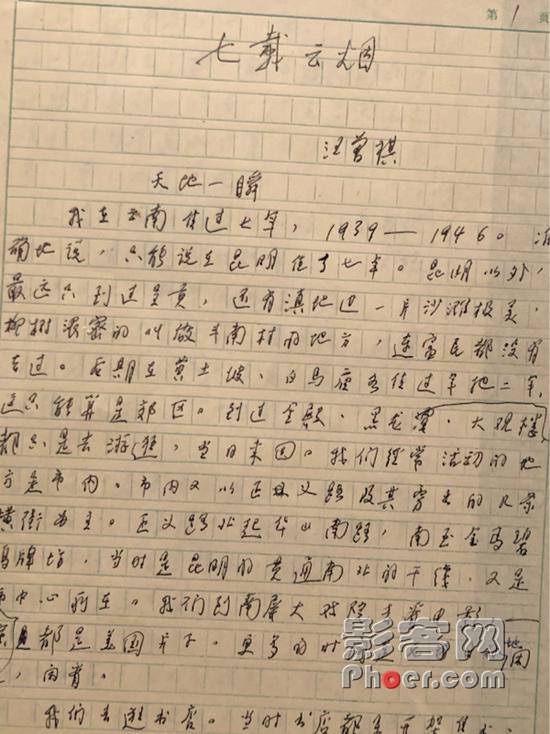 第 1 页
七载云烟
汪曾祺
天地一瞬
我在云南住过七年，1939—1946。准
确地说，只能说在昆明住了七年。昆明以外，
最远只到过呈贡，还有滇池边一片沙滩极美、
柳树浓密的叫做斗南村的地方，连富民都没有
去过。后期在黄土坡、白马庙各住过年把二年，
这只能算是郊区。到过金殿、黑龙潭、大观楼，
都只是去游逛，当日来回。我们经常活动的地
方是市内。市内又以正义路及其旁出的几条
横街为主。正义路北起华山南路，南至金马碧
鸡牌坊，当时是昆明的贯通南北的干线，又是
中心所在。我们到南屏大戏院去看电影
都是美国片子。更多的时间
，闲看。
我们去逛书店。当时书店都是开架售书，
影客网
Phoer.com